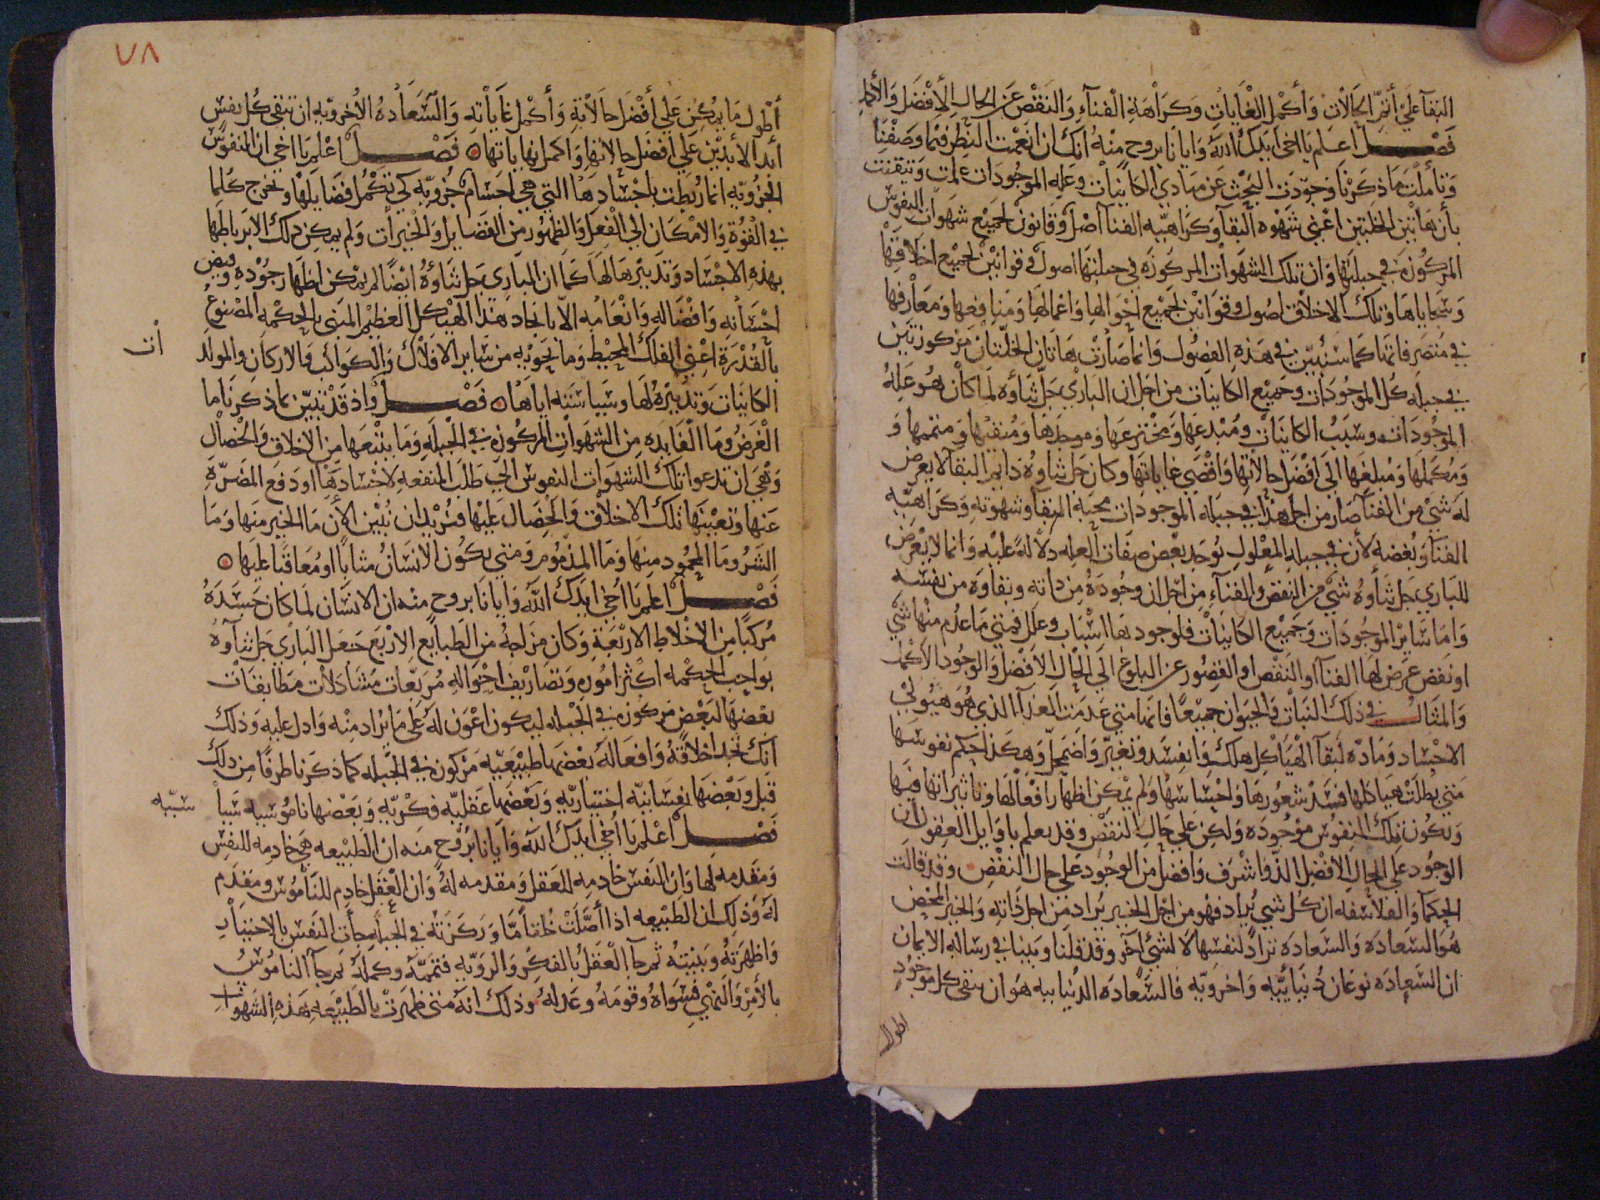 البقآ على أتمّ الحالات وأكمل الغايات وكراهة الفنآء والنقص عن الحال الأفضل والأكمل
فصل اعلم يا اخي ايدك الله وايانا بروح منه انك ان انعمت النظر فيما وصفنا
وتأملت ما ذكرنا وجوّدت البحث عن مبادي الكاينات وعلة الموجودات علمت وتيقنت
بأن هاتين الخلتين اعني شهوة البقآ وكراهية الفنآ أصل وقانون لجميع شهوات النفوس
المركوزة في جبلتها وان تلك الشهوات المركوزة في جبلتها اصول وقوانين لجميع اخلاقها
وسجاياها وتلك الاخلاق اصول وقوانين لجميع اخوالها واعمالها ومنافعها ومعارفها
في متصرفاتها كما سنبين في هذه الفصول وانما صارت هاتان الخلتان مركوزتين
في جبلة كل الموجودات وجميع الكاينات من اجل ان الباري جل ثناؤه لما كان هو علة
الموجودات وسبب الكاينات ومبدعها ومخترعها وموجدها ومبقيها ومتممها و
ومكملها ومبلغها الى افضل حالاتها واقصى غاياتها وكان جل ثناوه دايم البقآ لا يعرض
له شي من الفنآ صار من اجل هذا في جبلة الموجودات محبة البقآ وشهوته وكراهية
الفنآ وبغضه لأن في جبلة المعلول يوجد بعض صفات العلة دلالة عليه وانما لا يعرض
للباري جل ثناؤه شي من النقص والفنآء من اجل ان وجوده من ذاته وبقاؤه من نفسه
واما ساير الموجودات وجميع الكاينات فلوجودها اسباب وعلل فمتى ما عدم منها شي
او نقص عرض لها الفنآ او النقص او القصور عن البلوغ الى الحال الافضل والوجود الأكمل
والمثال في ذلك النبات والحيوان جميعًا فانهما متى عدمت الغذآ الذي هو هيولي
الاجساد ومادة لبقآ الهياكل هلك وانفسد وتغيّر واضمحلّ وهكذا حكم نفوسها
متى بطلت هياكلها فسد شعورها واحساسها ولم يمكن اظهار افعالها وتاثيراتها فيها
وتكون تلك النفوس موجودة ولكن على حال النقص وقد يعلم باوايل العقول أن
الوجود على الحال الافضل الذّ واشرف وافضل من الوجود على حال النقص وقد قالت
الحكمآ والفلاسفة ان كل شي يُراد فهو من اجل الخير يراد من اجل ذاته والخير المحض
هو السعادة والسعادة تراد لنفسها لا لشيءٍ آخر وقد قلنا وبينا في رسالة الايمان
ان السعادة نوعان دُنيائية واخروية فالسعادة الدُنيائيه هو ان يبقى كل موجود
اطول
٧٨
أطول ما يمكن على أفضل حالاته وأكمل غاياته والسعادة الأخروية ان تبقى كل نفس
أبد الأبدين على افضل حالاتها وأكمل نهاياتها فصل اعلم يا اخي ان النفوس
الجزوية انما ربطت بأجسادها التي هي اجسام جُزوية كي تكمل فضايلها وتخرج كلما
في القوة والامكان الى الفعل والظهور من الفضايل والخيرات ولم يمكن ذلك الا بربطها
بهذه الاجساد وتدبيرها لها كما ان الباري جل ثناؤه ايضًا لم يمكن اظهار جُوده وفيض
احسانه وافضاله وانعامه الا بايجاد هذا الهيكل العظيم المبني بالحكمة المصنوع
بالقدرة اعني الفلك المحيط وما يحويه من ساير الافلاك والكواكب والاركان والمولد
ات
الكاينات وتدبيره لها وسياسته اياها فصل واذ قد تبين بما ذكرنا ما
الغرض وما الفايدة من الشهوات المركوزة في الجبلة وما يتبعها من الاخلاق والخصال
وهي ان تدعو تلك الشهوات النفوس الى طلب المنفعة لاجسادها او دفع المضرّة
عنها وتعينها تلك الاخلاق والخصال عليها فنريد ان نبين الأن ما الخير منها وما
الشر وما المحمود منها وما المذموم ومتى يكون الانسان مثابا او معاقبا عليها
فصل اعلم يا اخي ايدك الله وايانا بروح منه ان الانسان لما كان جسده
مركبا من الاخلاط الاربعة وكان مزاجه من الطبايع الاربع جعل الباري جل ثناؤه
بواجب الحكمة اكثر اموره وتصاريف احواله مربعات متشاكلات مطابقات
بعضها لبعض مركوزة في الجبلة ليكون اعون له على ما يراد منه وادل عليه وذلك
انك تجد اخلاقه وافعاله بعضها طبيعيه مركوزه في الجبلة كما ذكرنا طرفًا من ذلك
قبل وبعضها نفسانيه اختياريه وبعضها عقليه فكريه وبعضها ناموسيه سيا
سيه
فصل اعلم يا أخي ايدك الله وايانا بروحٍ منه ان الطبيعه هي خادمه للنفس
ومقدمة لها وان النفس خادمه للعقل ومقدمه له وان العقل خادم للناموس ومقدم
له وذلك ان الطبيعه اذا أصّلت خلقًا مّا وركزته في الجبلة جأت النفس بالاختيار
واظهرته وبينته ثم جآ العقل بالفكر والرويه فتممه وكمله ثم جآ الناموس
بالأمر والنهي فسواه وقومه وعدله وذلك انه متى ظهرت بالطبيعه هذه الشهوات